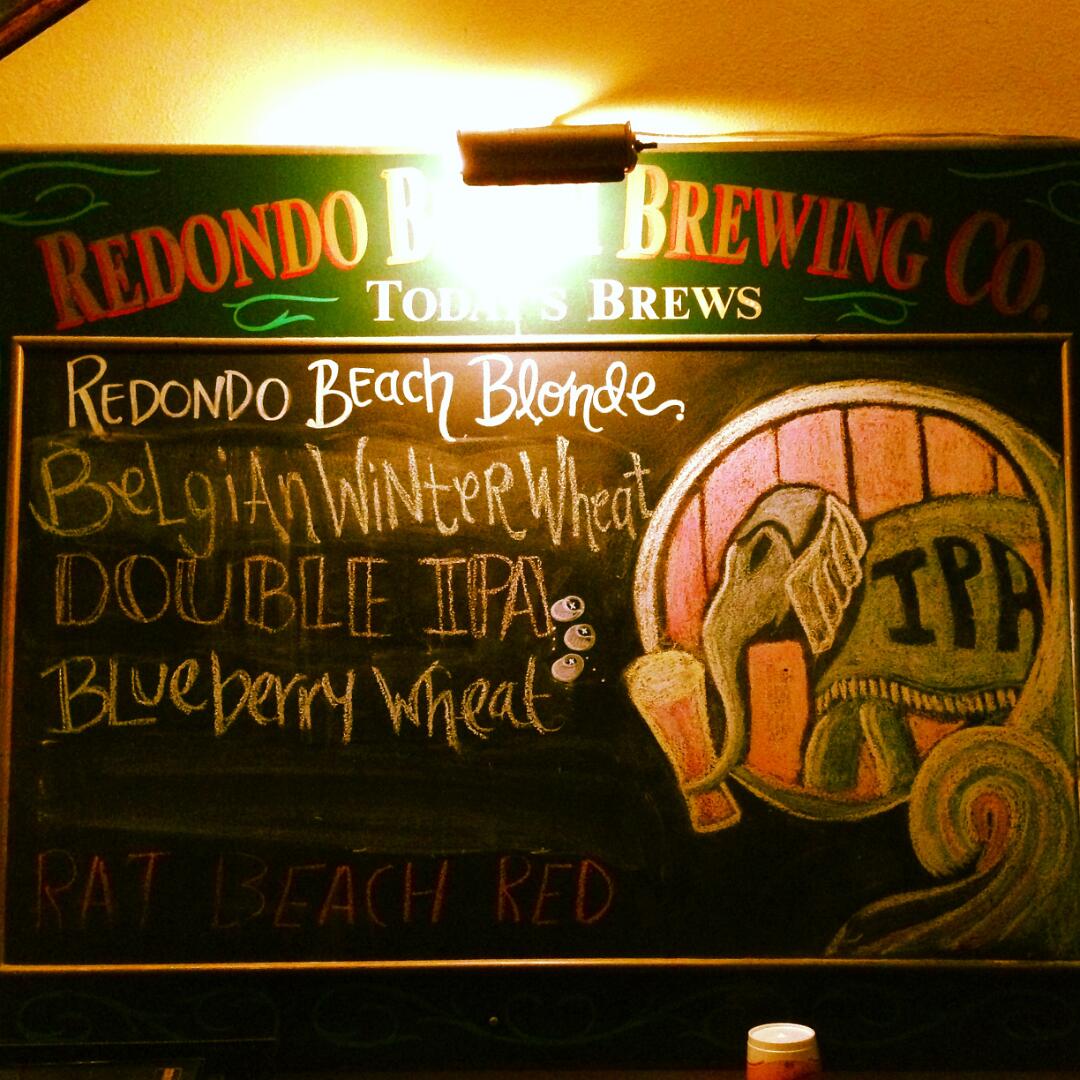 REDONDO B BREWING CO.
TODAY'S BREWS
REDONDO Beach Blonde
BeLgiAn WiNteR Wheat
DOUBLE IPA
BLueberry Wheat
RAT BEACH RED
IPA